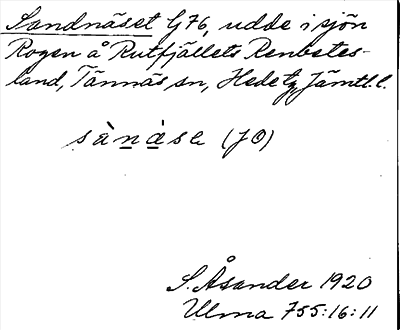 Sandnäset G76, udde i sjön
Rogen å Rutfjällets Renbetes-
land, Tännäs sn, Hede tg Jämtl. l.
sànàse (JO)
S. Åsander 1920
Ulma 755:16:11